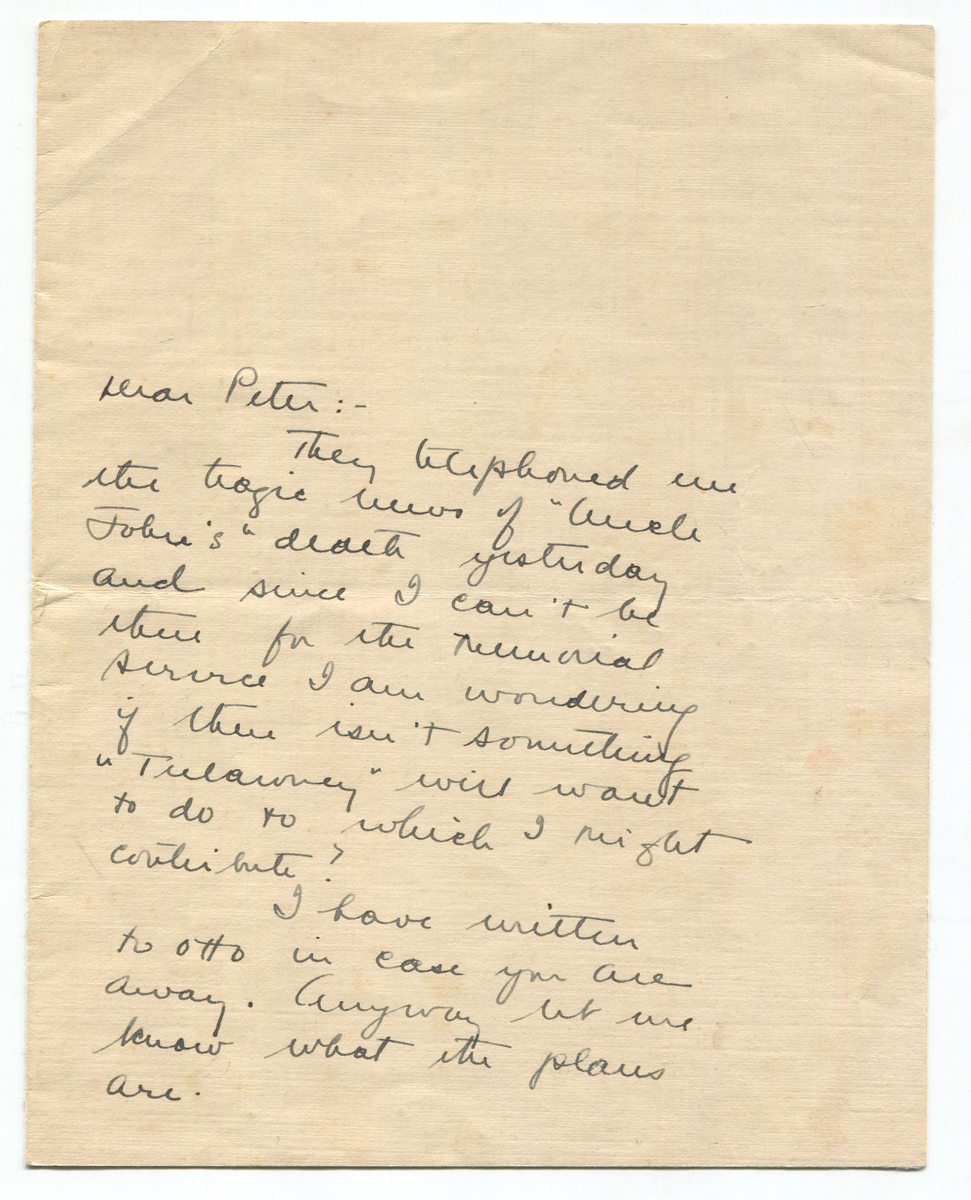 Dear Peter:-
They telephoned me
the tragic news of "Uncle
John's" death yesterday
and since I can't be
there for the memorial
service I am wondering
if there isn't something
"Trelawney" will want
to do to which I might
contribute?
I have written
to Otto in case you are
away. Anyway let me
know what the plans
are.